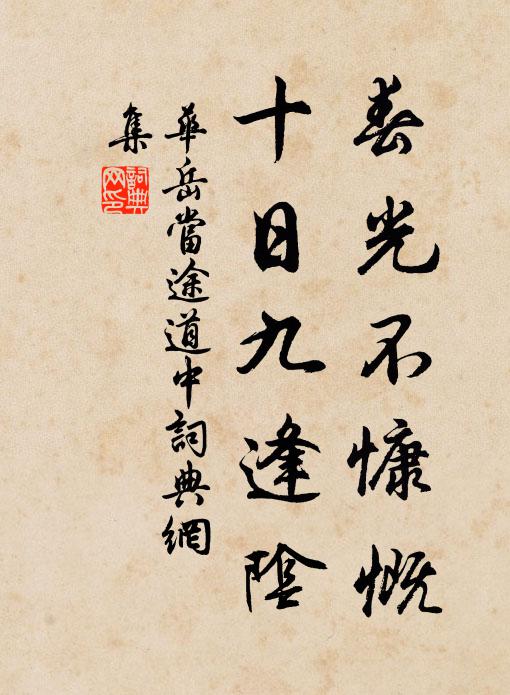 春光不慷慨
十日九逢陰
華岳當途道中詞典網
集
詞典
网印